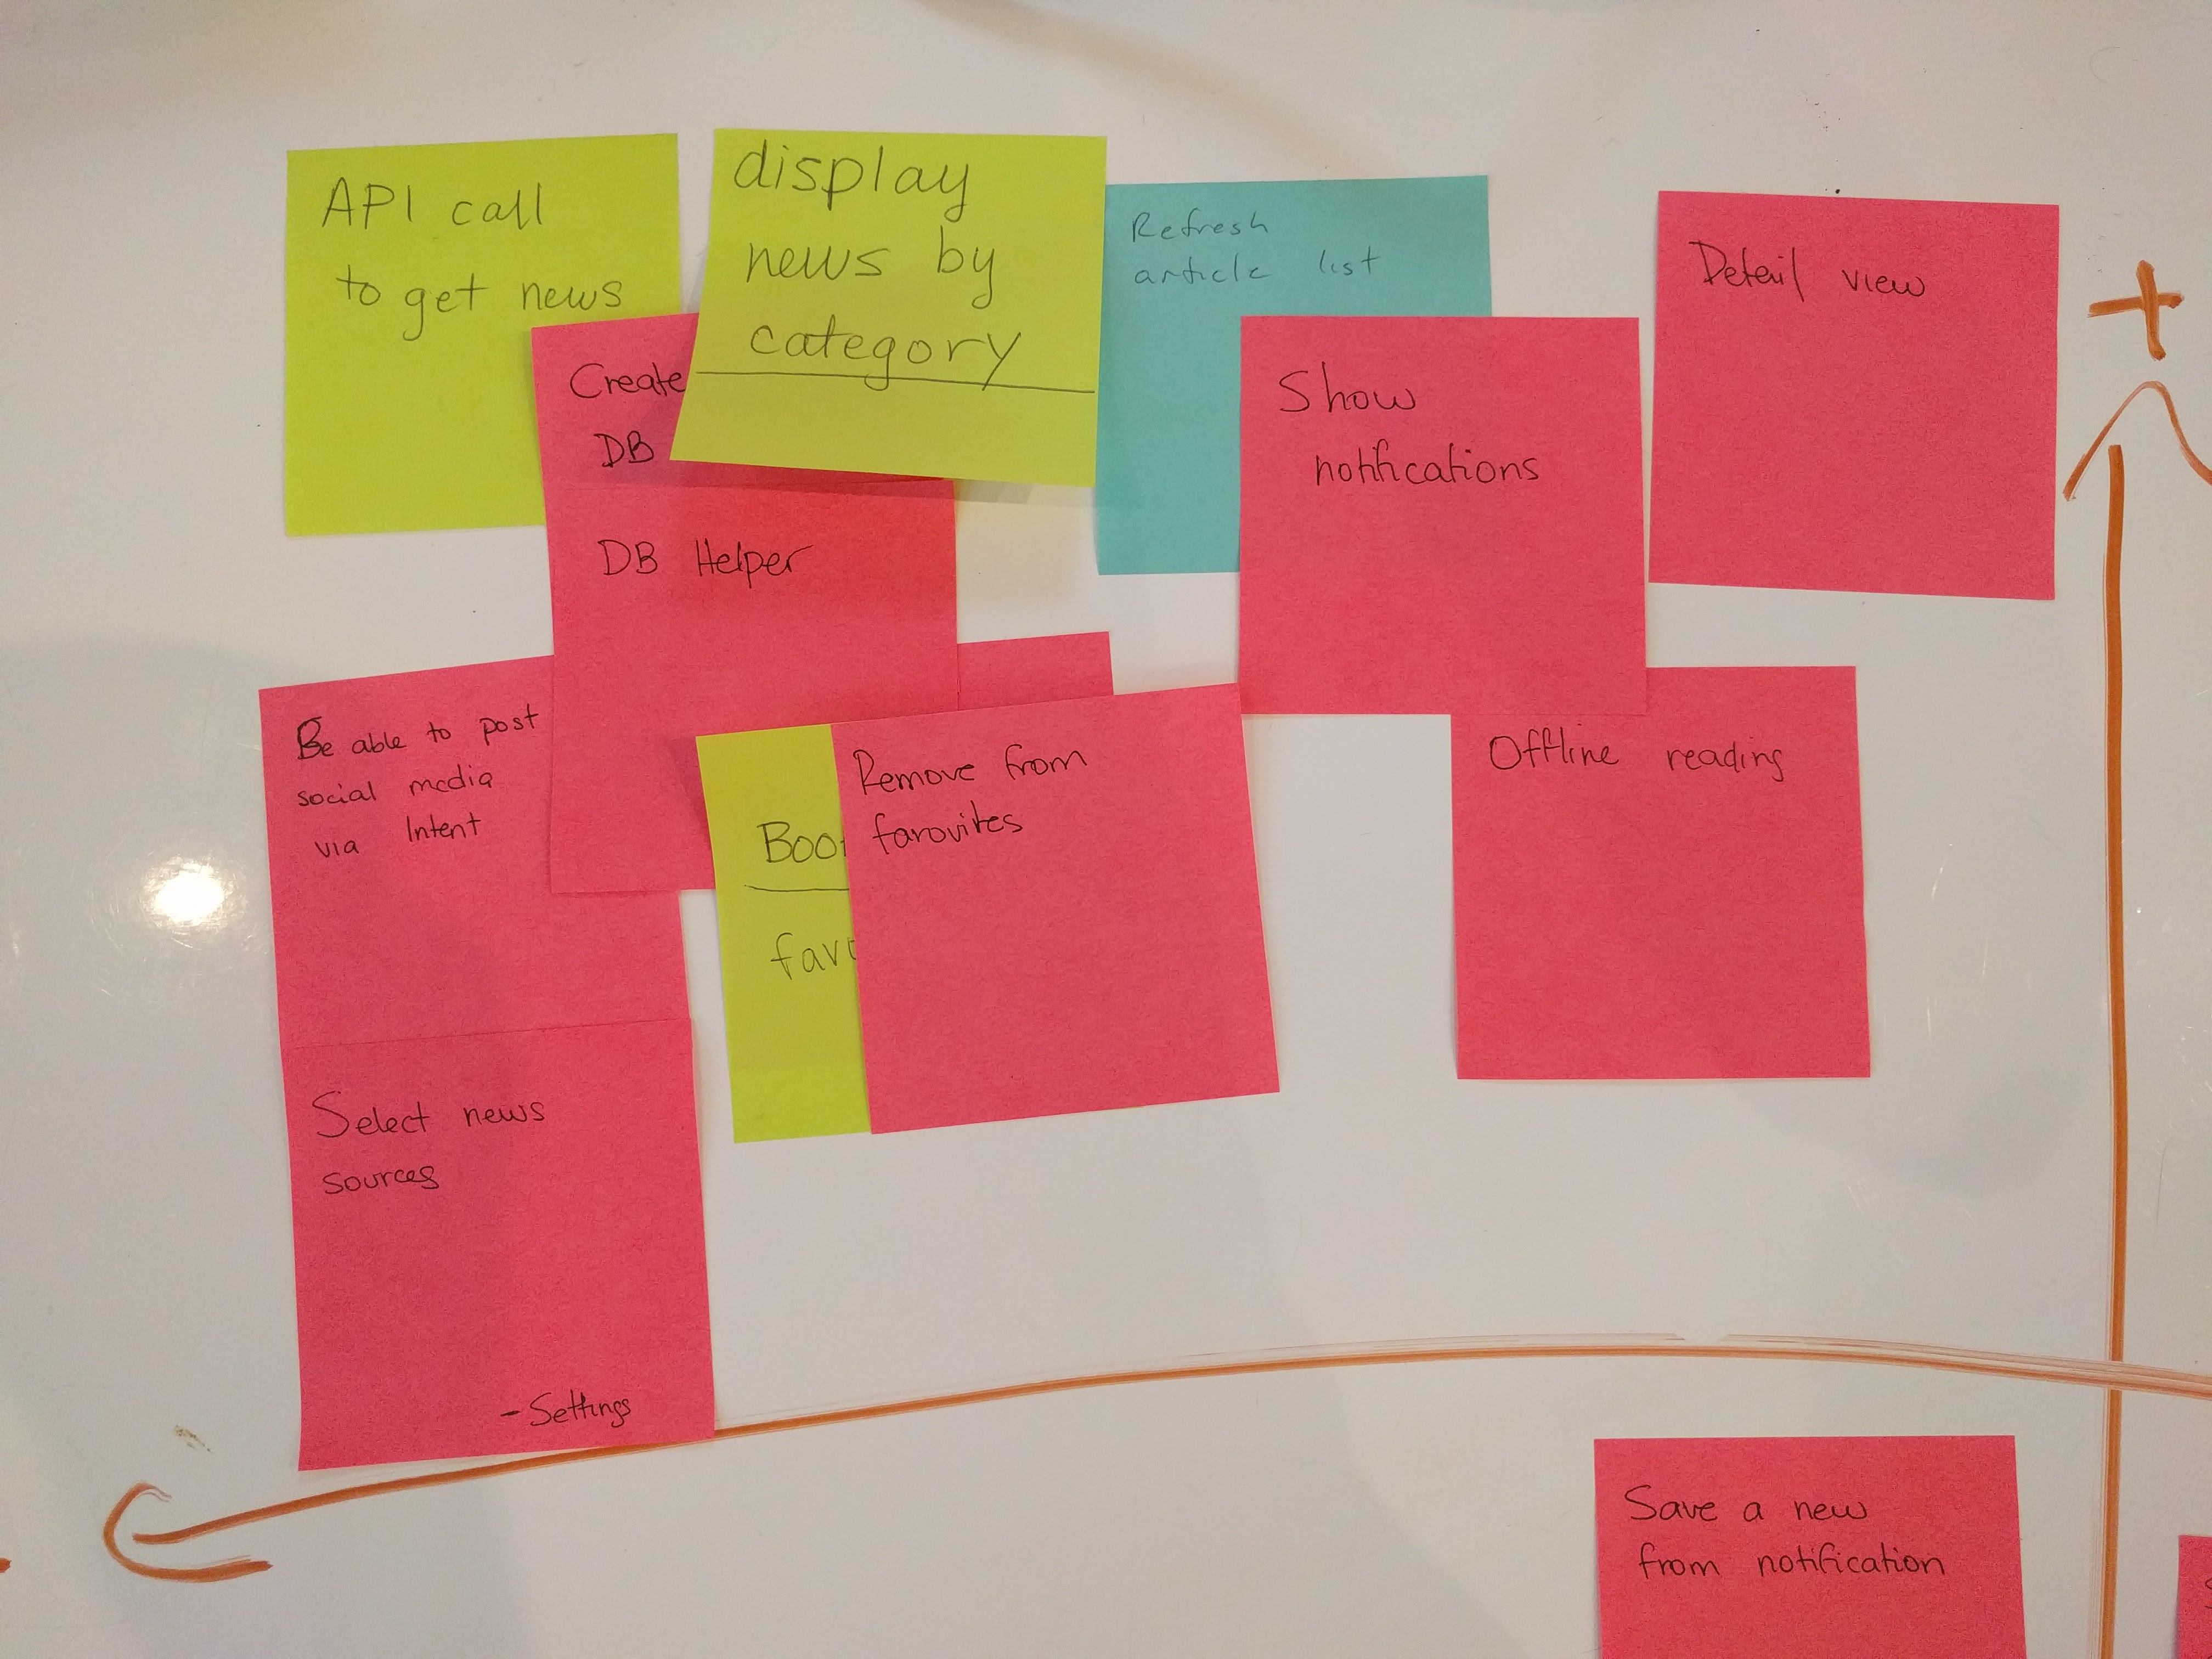 API call
to get news
display
news by
category
Refresh
article list
Detail view
+
Create
DB
DB Helper
Show
notifications
Be able to post
social media
via Intent
Remove from
farovites
Offline reading
Select news
sources
- Settings
Save a new
from notification